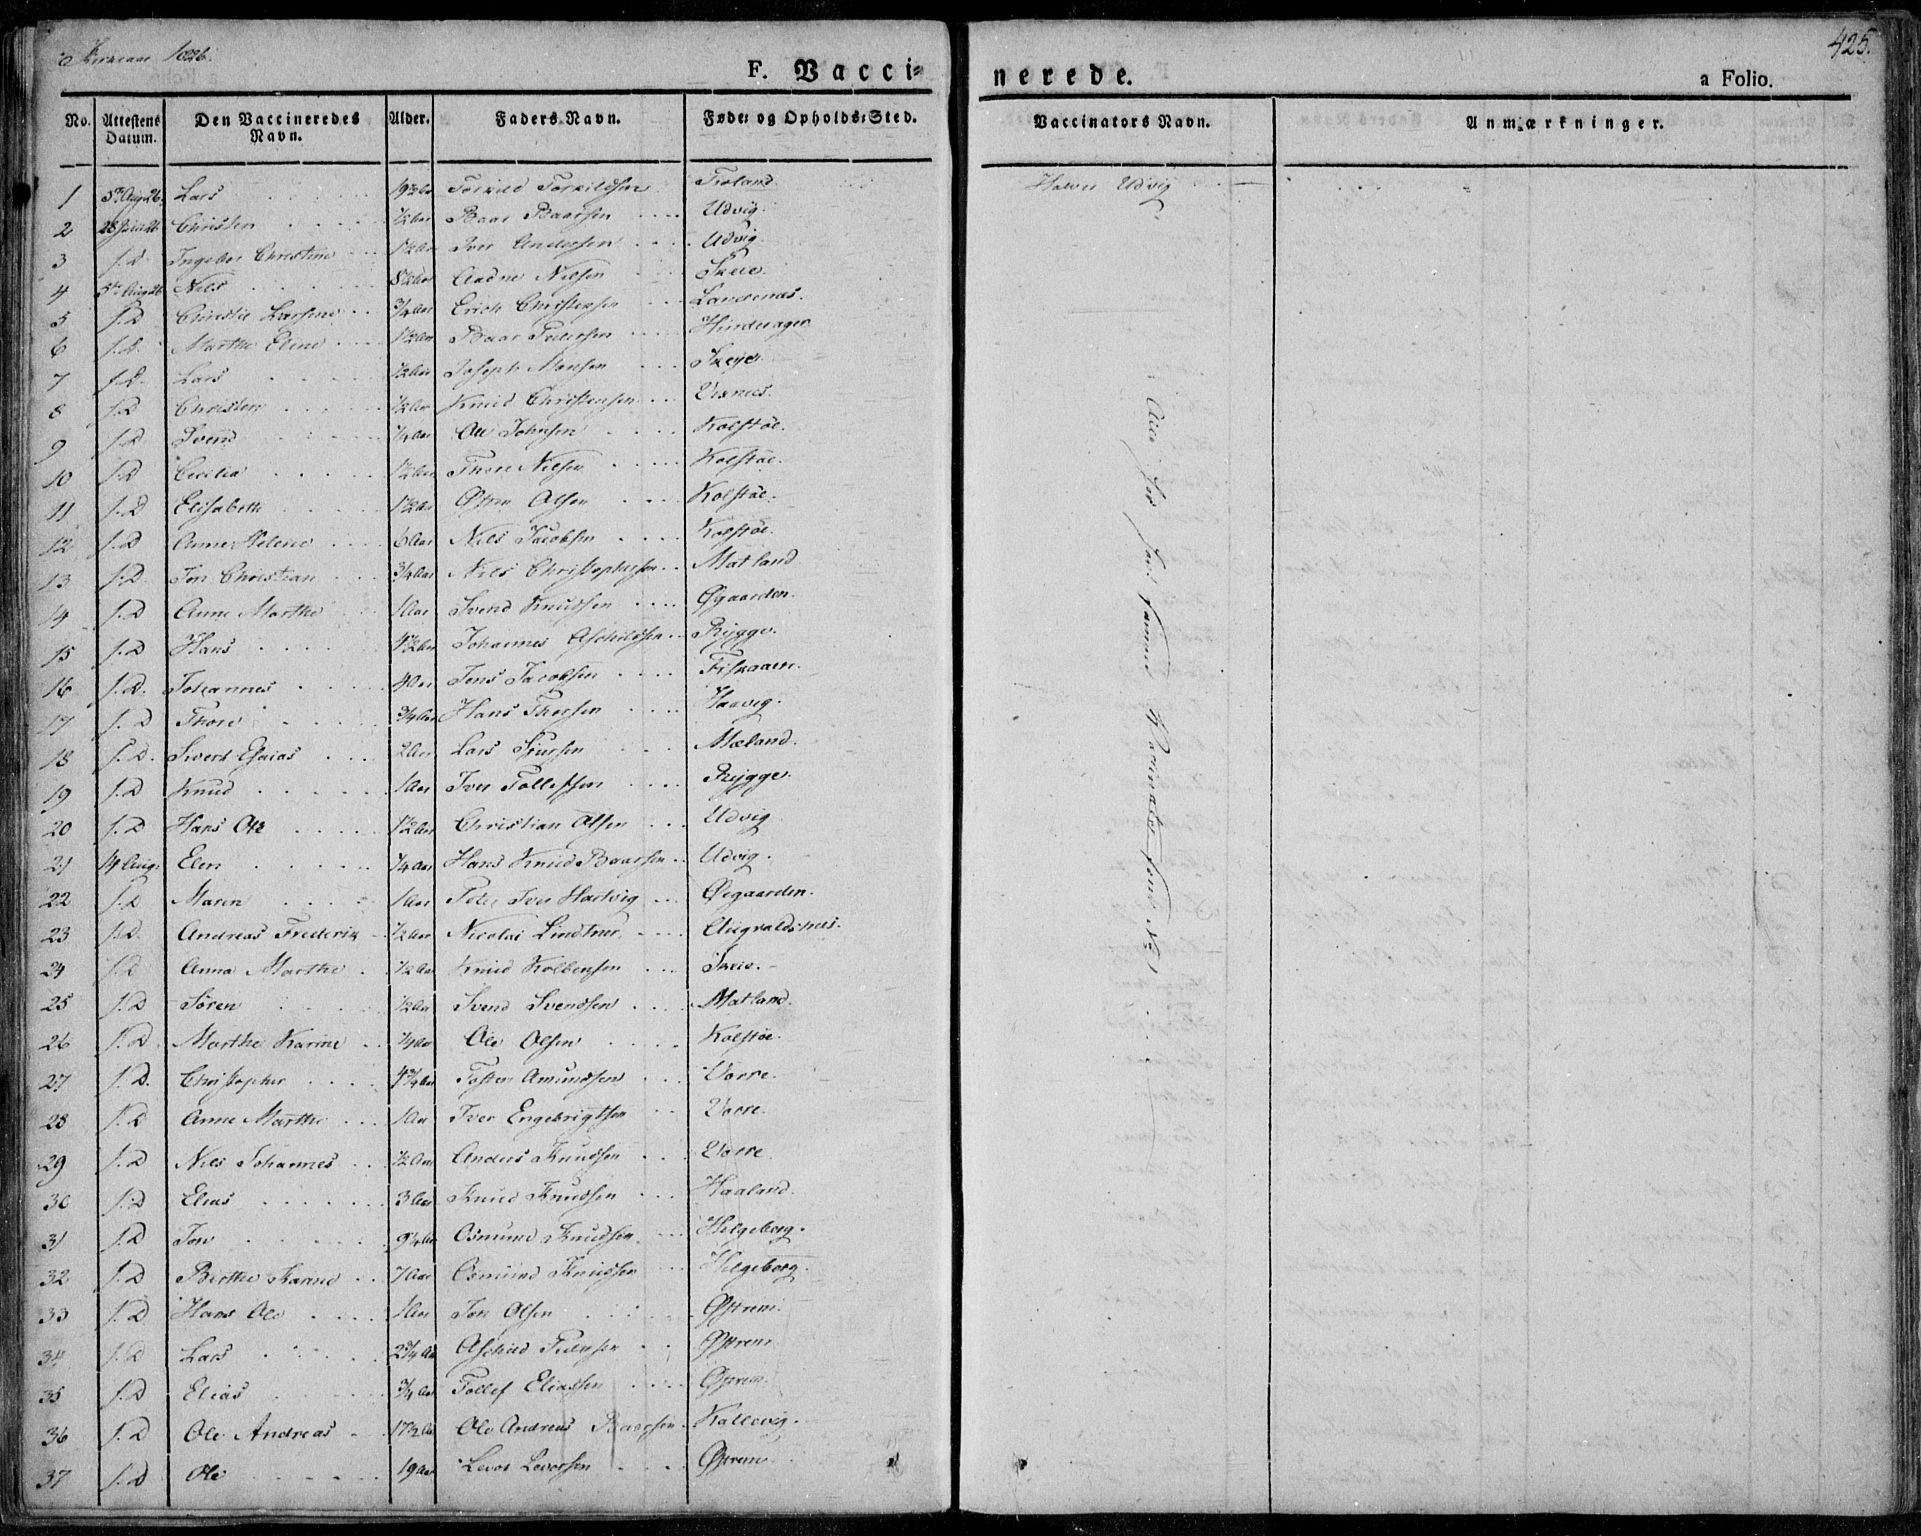 1826.
425.
F. Vacci-
nerede.
a Folio.
No. Attestens Datum. Den Vaccineredes Navn. Alder. Faders Navn. Føde- og Opholds-Sted. Vaccinators Navn. Anmærkninger.
1 5te Aug 26. Lars 19½ Aar Torkild Torkildsen Halvor Udvig
2 Christen ½ Aar Baar Baarsen Udvig.
3 s. D Ingebor Christine 1½ Aar Iver Andersen Udvig
4 5te Aug 26 Nils 8½ Aar Aadne Nilsen Skeie
5 s. D Larsine ¾ Aar Erich Christensen
6 s. D. Marthe Eline 1½ Aar Baar Pedersen Hinderager
7 s. D. Lars ½ Aar Joseph Monsen Skeje
8 s. D Christen ½ Aar Knud Christensen Visnes.
9 s. D Svend ¼ Aar Ole Johnsen Kolstöe.
10 s. D Cecilia 1½ Aar Thore Nilsen Kolstöe.
11 s. D Elisabeth 1½ Aar Olsen Kolstöe.
12 s. D Anne Helene 6 Aar Nils Jacobsen Kolstöe.
13 s. D. Jon Christian ¾ Aar Nils Christophersen Matland
14 s. D Anne Marthe 1 Aar Svend Knudsen Øgaarden.
15 s. D Hans 4½ Aar Johannes Aschildsen Rygge.
16 s. D. Johannes 4 Aar Jens Jacobsen Fiskaaen.
17 s. D Thore ¾ Aar Hans Thorsen Haavig.
18 s. D. Sivert Esaias 2 Aar Lars Mæland.
19 s. D Knud 1 Aar Iver Tollefsen Rygge.
20 s. D Hans Ole 1½ Aar Christian Olsen Udvig
21 14 Aug. Elen ¼ Aar Hans Knud Baarsen Udvig.
22 s. D Maren 1 Aar Peter Iver Hartvig Øegaarden.
23 s. D. Andreas Frederik ½ Aar Nicolai Lindtner Augvaldsnes.
24 s. D Anna Marthe ½ Aar Knud Kolbensen Skeie.
25 s. D Sören ½ Aar Svend Svendsen Matland.
26 s. D. Marthe Karine ¼ Aar Ole Olsen Kolstöe.
27 s. D. Christopher 4¾ Aar Tosten Amundsen Vorre.
28 s. D Anne Marthe 1 Aar Iver Engebrigtsen Vorre.
29 s. D Nils Johannes ½ Aar Anders Knudsen Vorre
30 s. D Elias 3 Aar Knud Knudsen Haaland.
31 s. D Jon 9¼ Aar Osmund Knudsen Helgeberg.
32 s. D Berthe Karine 7 Aar Osmund Knudsen Helgeberg.
33 s. D Hans Ole 1 Aar Jon Olsen Østrem.
34 s. D Lars 2¾ Aar Aschild Østrem
35 s. D Elias ¾ Aar Tollef Eliassen Østrem.
36 s. D Ole Andreas 17½ Aar Ole Andreas Baarsen Kallevig.
37 s. D Ole 19 Aar Levor Levorsen Østrem